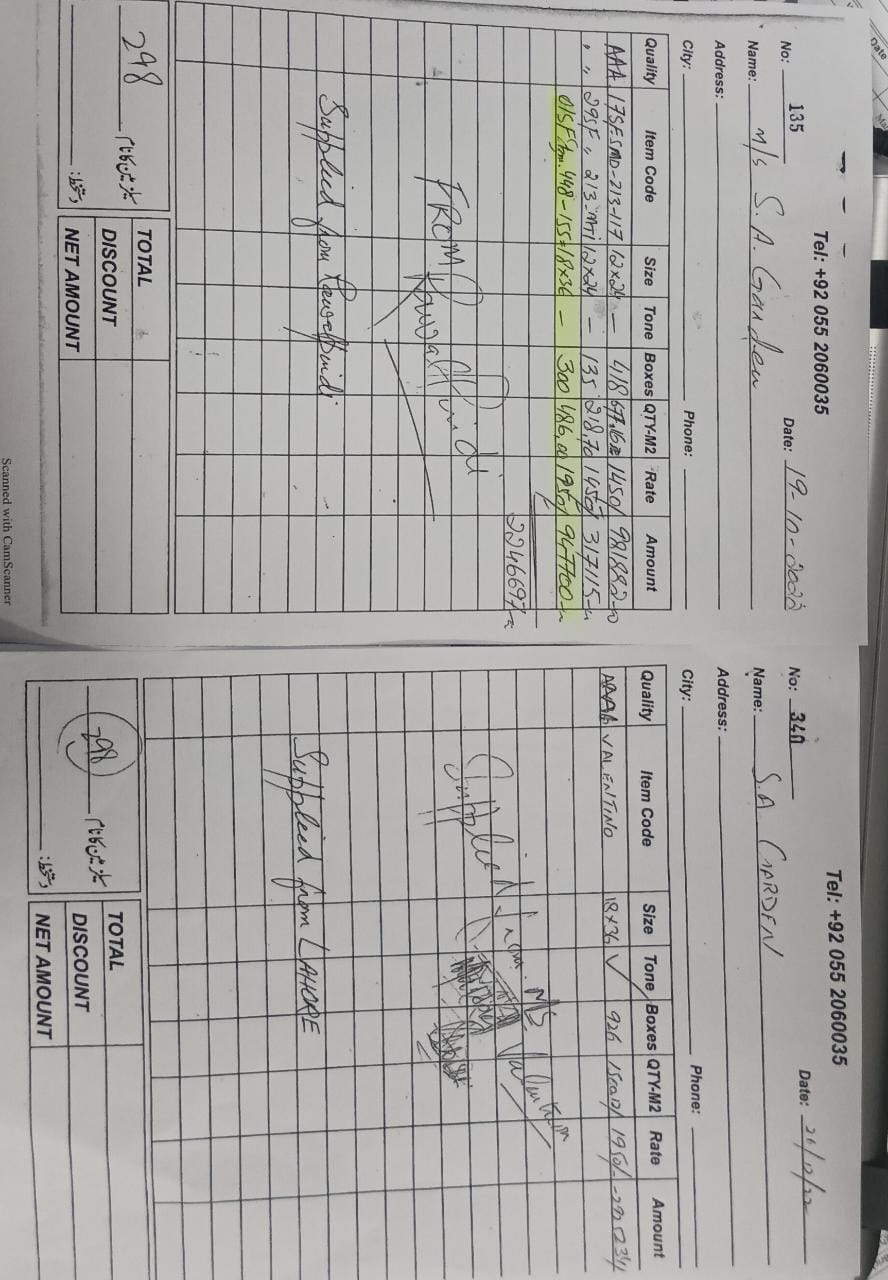 Tel: +92 055 2060035
No: 135
Date: 19-10-2022
Name: M/s S.A. Garden
Address:
City: Phone:
Quality Item Code Size Tone Boxes QTY-M2 Rate Amount
AAA 12x24 - 418 677.16 1450/ 981882-00
" " 12x24 - 135 218,70 1450/ 317115-00
448-155 = 18x36 - 300 486,00 1950/ 947700-00
2246697-00
FROM Rawalpindi
Supplied from Rawalpindi
298
TOTAL
DISCOUNT
NET AMOUNT
دستخط:
Scanned with CamScanner
Tel: +92 055 2060035
No: 340
Date: 26/12/22
Name: S.A GARDEN
Address:
City: Phone:
Quality Item Code Size Tone Boxes QTY-M2 Rate Amount
VALENTINO 18x36 ✓ 926 1950/-
Supplied from M/s
Supplied from LAHORE
298
TOTAL
DISCOUNT
NET AMOUNT
دستخط: